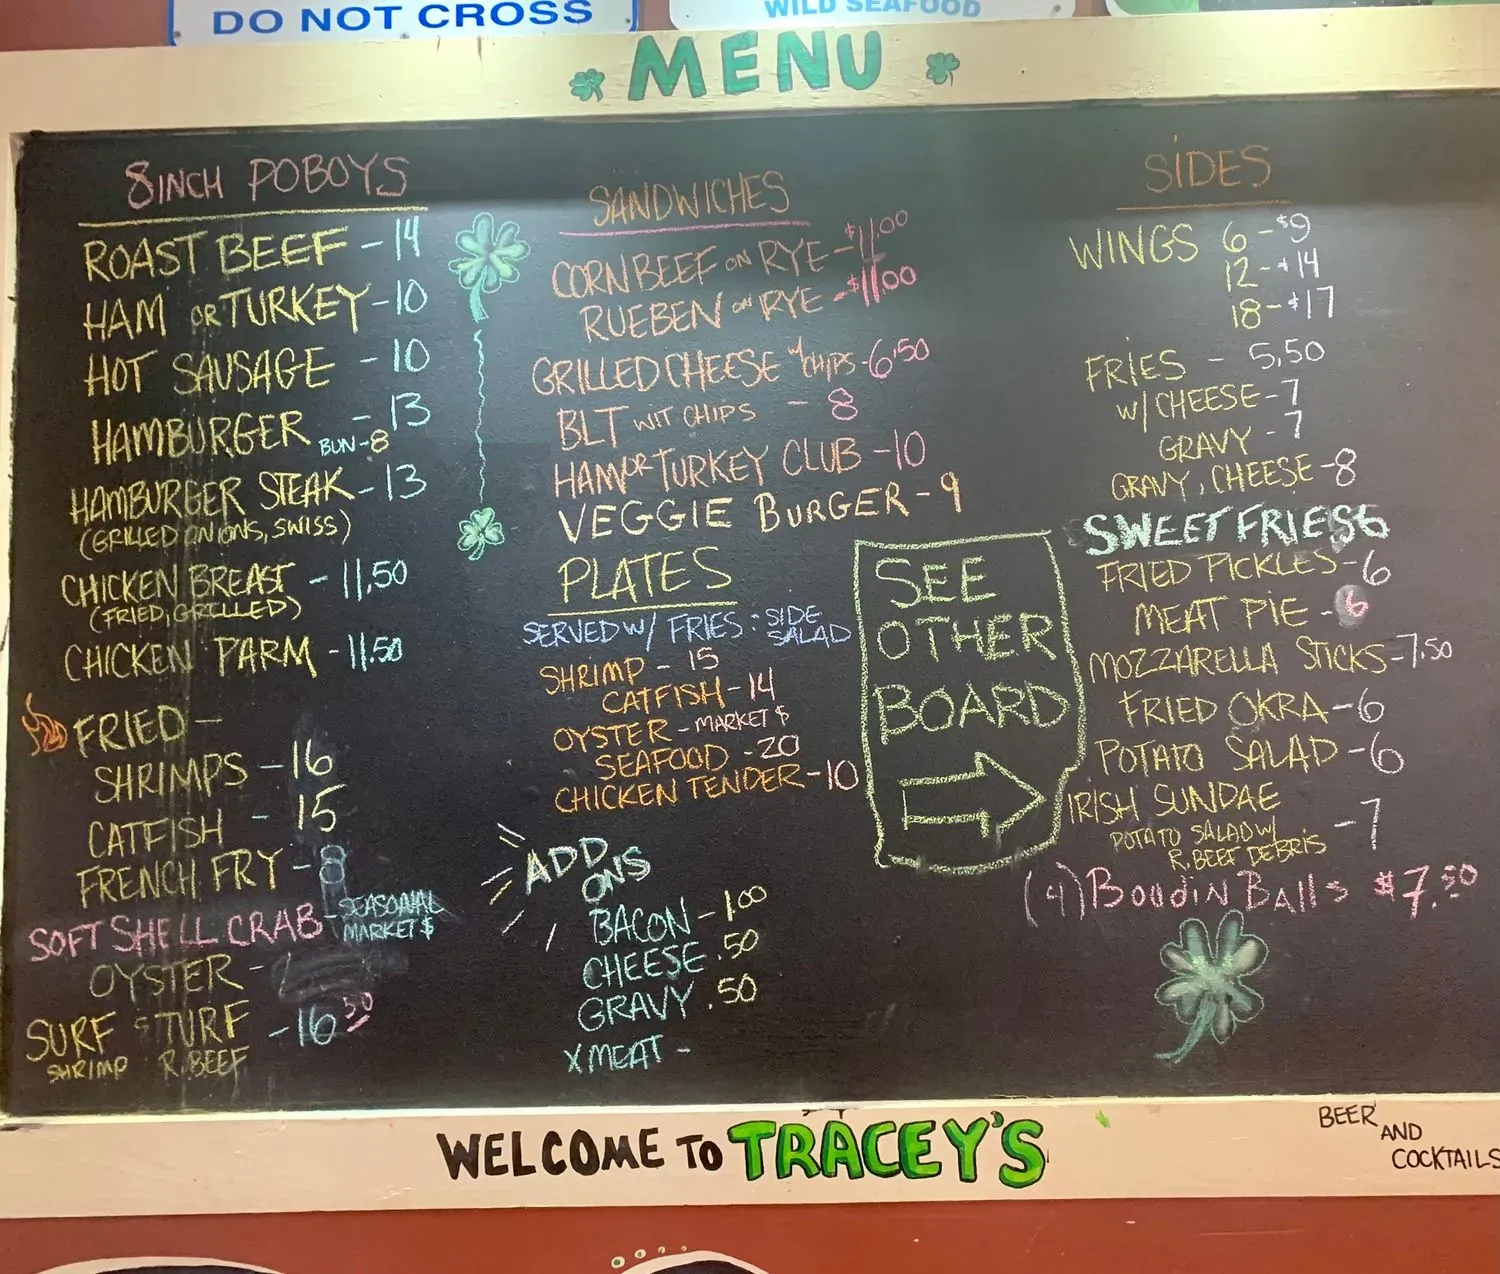 DO NOT CROSS
WILD SEAFOOD
MENU
8 INCH POBOYS
ROAST BEEF - 14
HAM OR TURKEY - 10
HOT SAUSAGE - 10
HAMBURGER - 13
BUN - 8
HAMBURGER STEAK - 13
(GRILLED ONIONS, SWISS)
CHICKEN BREAST - 11.50
(FRIED, GRILLED)
CHICKEN PARM - 11.50
FRIED -
SHRIMPS - 16
CATFISH - 15
FRENCH FRY - 8
SOFT SHELL CRAB - SEASONAL
MARKET $
OYSTER -
SURF & TURF - 16.50
SHRIMP R. BEEF
SANDWICHES
CORN BEEF ON RYE - $11.00
RUEBEN ON RYE - $11.00
GRILLED CHEESE W/ CHIPS - 6.50
BLT WIT CHIPS - 8
HAM OR TURKEY CLUB - 10
VEGGIE BURGER - 9
PLATES
SERVED W/ FRIES : SIDE
SALAD
SHRIMP - 15
CATFISH - 14
OYSTER - MARKET $
SEAFOOD - 20
CHICKEN TENDER - 10
ADD
ONS
BACON - 1.00
CHEESE .50
GRAVY .50
X MEAT -
SEE
OTHER
BOARD
SIDES
WINGS 6 - $9
12 - $14
18 - $17
FRIES - 5.50
W/ CHEESE - 7
GRAVY - 7
GRAVY, CHEESE - 8
SWEET FRIES 6
FRIED PICKLES - 6
MEAT PIE - 6
MOZZARELLA STICKS - 7.50
FRIED OKRA - 6
POTATO SALAD - 6
IRISH SUNDAE
POTATO SALAD W/ - 7
R. BEEF DEBRIS
(4) Boudin Balls $7.50
WELCOME TO TRACEY'S
BEER AND
COCKTAILS